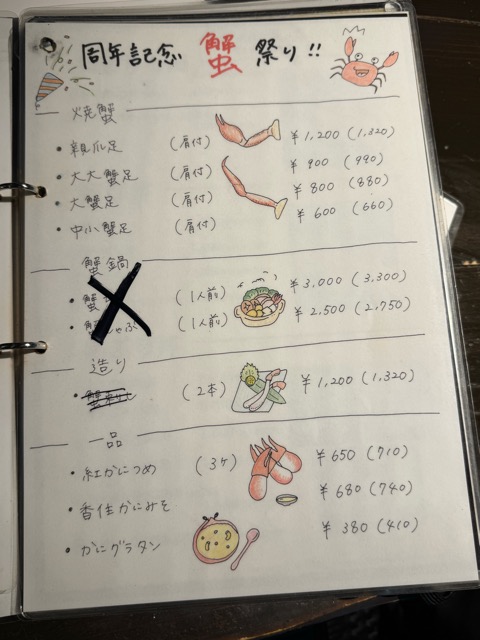 周年記念 蟹 祭り!!
焼蟹
・親爪足 (肩付) ¥1,200 (1,320)
・大大蟹足 (肩付) ¥900 (990)
・大蟹足 (肩付) ¥800 (880)
・中小蟹足 (肩付) ¥600 (660)
蟹鍋
・蟹 (1人前) ¥3,000 (3,300)
・しゃぶ (1人前) ¥2,500 (2,750)
造り
・(2本) ¥1,200 (1,320)
一品
・紅かにつめ (3ヶ) ¥650 (710)
・香住かにみそ ¥680 (740)
・かにグラタン ¥380 (410)